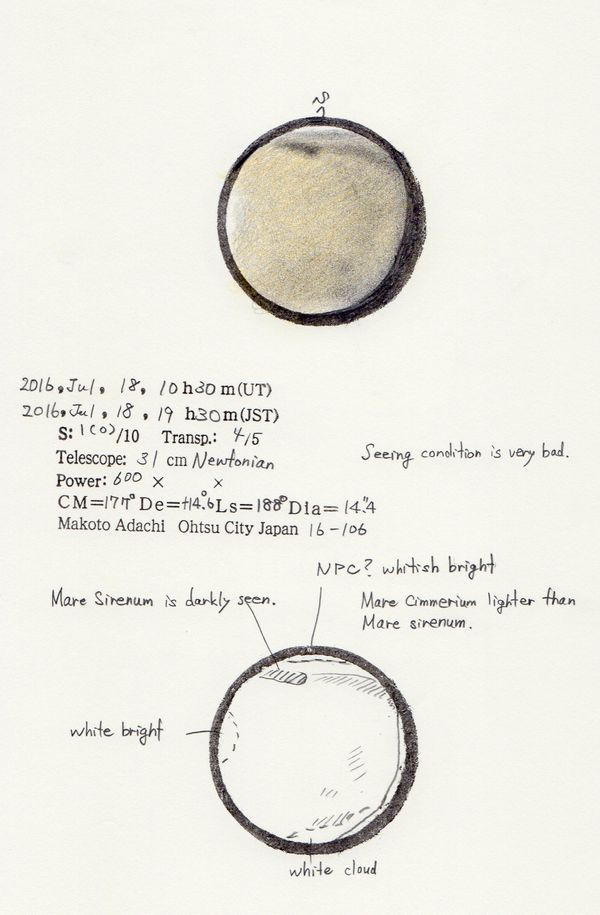 S
2016, Jul, 18, 10 h 30 m (UT)
2016, Jul, 18, 19 h 30 m (JST)
S: 1(0)/10 Transp.: 4/5
Telescope: 31 cm Newtonian
Seeing condition is very bad.
Power: 600 × ×
CM=177° De=+14.6° Ls=188° Dia=14."4
Makoto Adachi Ohtsu City Japan 16-106
NPC? whitish bright
Mare Sirenum is darkly seen.
Mare Cimmerium lighter than
Mare sirenum.
white bright
white cloud